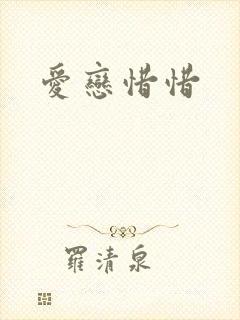 愛戀惜惜
羅清泉